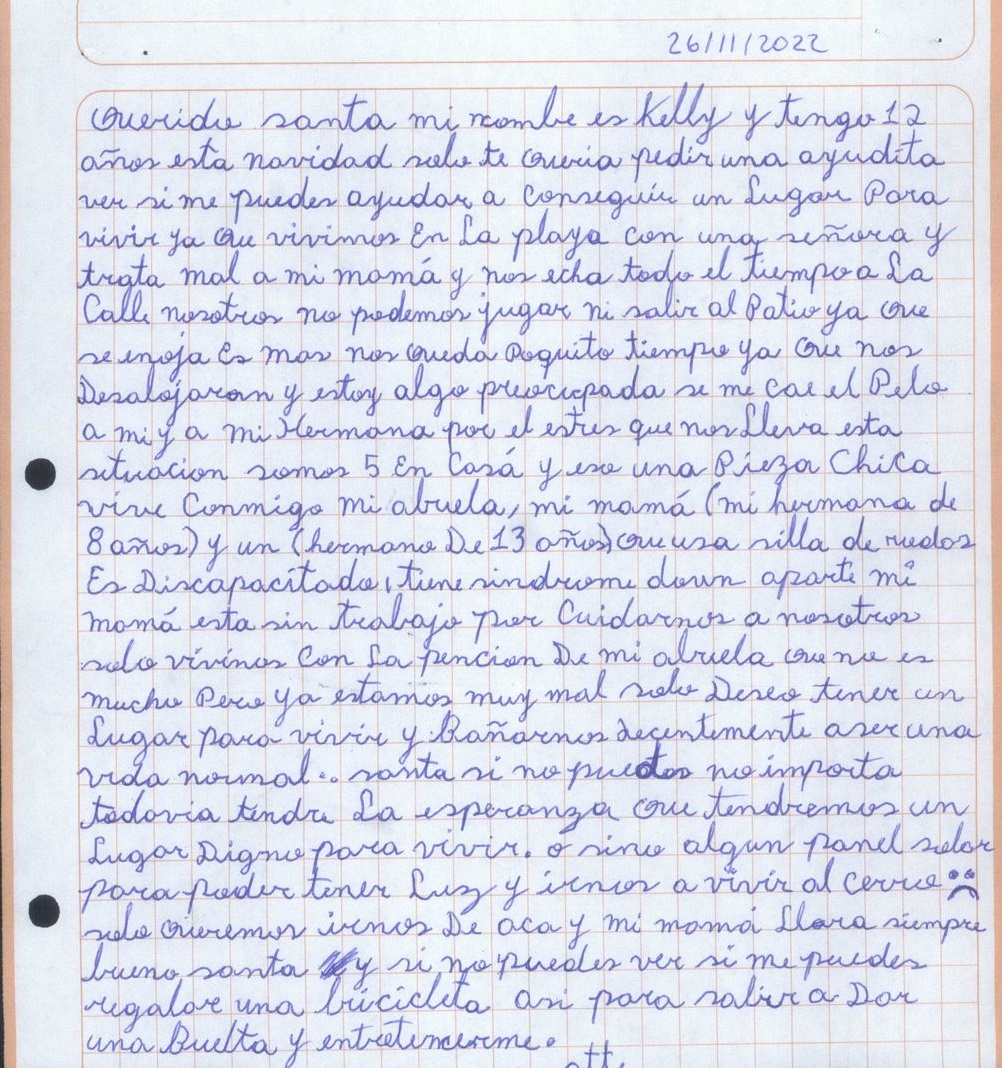 26/11/2022
Querido santa mi nombre es Kelly y tengo 12
años esta navidad solo te queria pedir una ayudita
ver si me puedes ayudar a conseguir un Lugar Para
vivir ya que vivimos En La playa con una señora y
trata mal a mi mamá y nos echa todo el tiempo a La
Calle nosotros no podemos jugar ni salir al Patio ya que
se enoja Es mas nos queda Poquito tiempo ya que nos
Desalojaran y estoy algo preocupada se me cae el Pelo
a mi y a mi Hermana por el estres que nos Lleva esta
situacion somos 5 En Casá y eso una Pieza Chica
vive Conmigo mi abuela, mi mamá (mi hermana de
8 años) y un (hermano De 13 años) que usa silla de ruedas
Es Discapacitado, tiene sindrome down aparte mi
mamá esta sin trabajo por Cuidarnos a nosotros
solo vivinos Con La pencion De mi abuela que no es
mucho Pero ya estamos muy mal solo Deseo tener un
Lugar para vivir y Bañarnos decentemente aser una
vida normal.. santa si no puedes no importa
todavia tendre La esperanza que tendremos un
Lugar Digno para vivir. o sino algun panel solar
para poder tener Luz y irnos a vivir al cerro
solo queremos irnos De aca y mi mamá Llora siempre
bueno santa y si no puedes ver si me puedes
regalar una bicicleta asi para salir a Dar
una Buelta y entretencerme.
att.